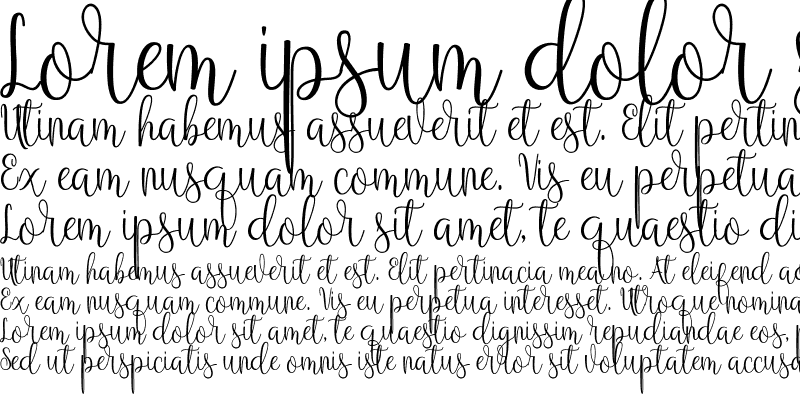 Lorem ipsum dolor
Utinam habemus assueverit et est. Elit pertin
Ex eam nusquam commune. Vis eu perpetua
Lorem ipsum dolor sit amet, te quaestio di
Utinam habemus assueverit et est. Elit pertinacia mea no. At eleifend ac
Ex eam nusquam commune. Vis eu perpetua interesset. Utroque nomina
Lorem ipsum dolor sit amet, te quaestio dignissim repudiandae eos,
Sed ut perspiciatis unde omnis iste natus error sit voluptatem accusd